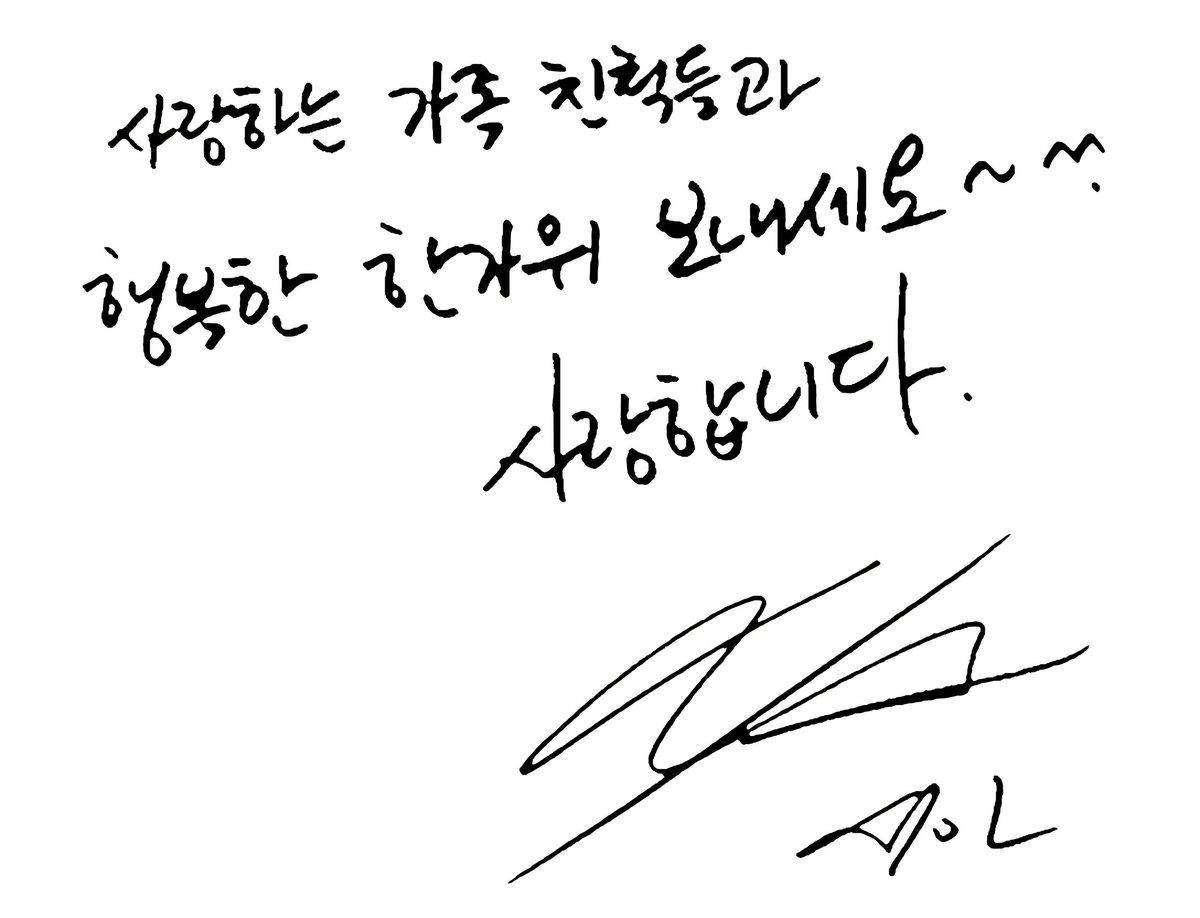 사랑하는 가족 친척들과
행복한 한가위 보내세요~^^.
사랑합니다.